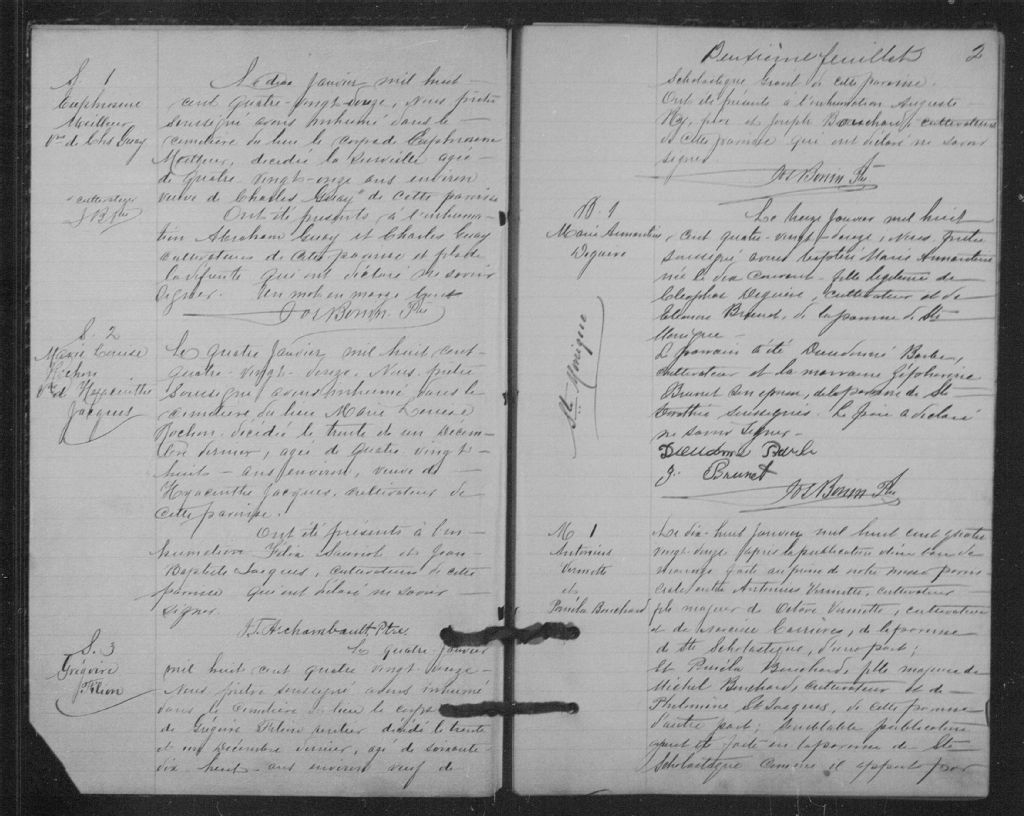 S. 1
Euphrosine
Meilleur
Vve de Chs Guay
Le deux Janvier mil huit
cent quatre-vingt-onze, Nous prêtre
soussigné avons inhumé dans le
cimetière du lieu le corps de Euphrosine
décédée la surveille agée
de quatre-vingt-onze ans environ
veuve de Charles Guay de cette paroisse
"cultivateur
J B Ptre
Ont été présents à l'inhuma-
tion Abraham Guay et Charles Guay
cultivateurs de cette paroisse et
la défunte qui ont déclaré ne savoir
signer. Un mot en marge
Jos Bonin Ptre
S. 2
Marie Louise
Rochon
Vve d'Hyacinthe
Jacques
Le quatre Janvier mil huit cent
quatre-vingt-onze, Nous prêtre
soussigné avons inhumé dans le
cimetière du lieu Marie Louise
Rochon décédée le trente et un Décem-
bre dernier, agée de quatre vingt-
huit ans environ, veuve de
Hyacinthe Jacques, cultivateur de
cette paroisse.
Ont été présents à l'in-
humation Félix et Jean-
Baptiste Jacques, cultivateurs de cette
paroisse qui ont déclaré ne savoir
signer.
J.T. Archambault, Ptre
S. 3
Grégoire
Filion
Le quatre Janvier
mil huit cent quatre vingt onze
Nous prêtre soussigné avons inhumé
dans le cimetière du lieu le corps
de Grégoire Filion rentier décédé le trente
et un Décembre dernier, agé de soixante-
dix-huit ans environ veuf de
Deuxième feuillet 2
Scholastique de cette paroisse.
Ont été présents à l'inhumation Auguste
et Joseph Bouchard, cultivateurs
de cette paroisse qui ont déclaré ne savoir
signer
Jos Bonin Ptre
B. 1
Marie Armantine
Deguire
Ste Monique
Le treize Janvier mil huit
cent quatre-vingt-onze, Nous prêtre
soussigné avons baptisé Marie Armantine
née le dix courant fille légitime de
Cléophas Deguire, cultivateur et de
Eléonore Brunet, de la paroisse de Ste
Monique
Le parrain a été Dieudonné Barbe,
cultivateur et la marraine Zéphirine
Brunet son épouse, de la paroisse de Ste
soussignés. Le père a déclaré
ne savoir signer.
Dieudonné Barbe
Z. Brunet
Jos Bonin Ptre
M 1
Antonius
Vermette
et
Paméla Bouchard
Le dix-huit Janvier mil huit cent quatre
vingt-onze après la publication d'un ban de
mariage faite au prône de notre messe parois-
siale entre Antonius Vermette, cultivateur
fils majeur de Octave Vermette, cultivateur
et de Carrières, de la paroisse
de Ste Scholastique, d'une part;
Et Paméla Bouchard, fille majeure de
Michel Bouchard, cultivateur et de
Philomène St Jacques, de cette paroisse
d'autre part; semblable publication
ayant été faite en la paroisse de Ste
Scholastique comme il appert par